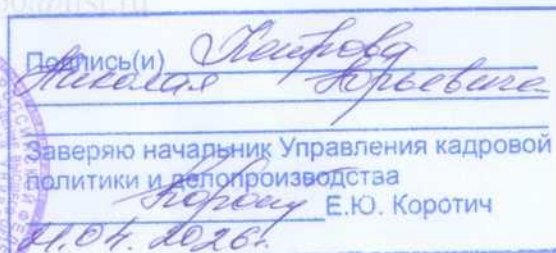 Подпись(и) Кеирова
Николая Юрьевича
Заверяю начальник Управления кадровой
политики и делопроизводства
Е.Ю. Коротич
21.04.2026г.